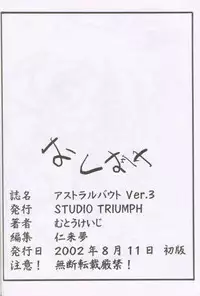 おしまい
誌名 アストラルバウト Ver.3
発行 STUDIO TRIUMPH
著者 むとうけいじ
編集 仁来夢
発行日 2002年8月11日 初版
注意! 無断転載厳禁!